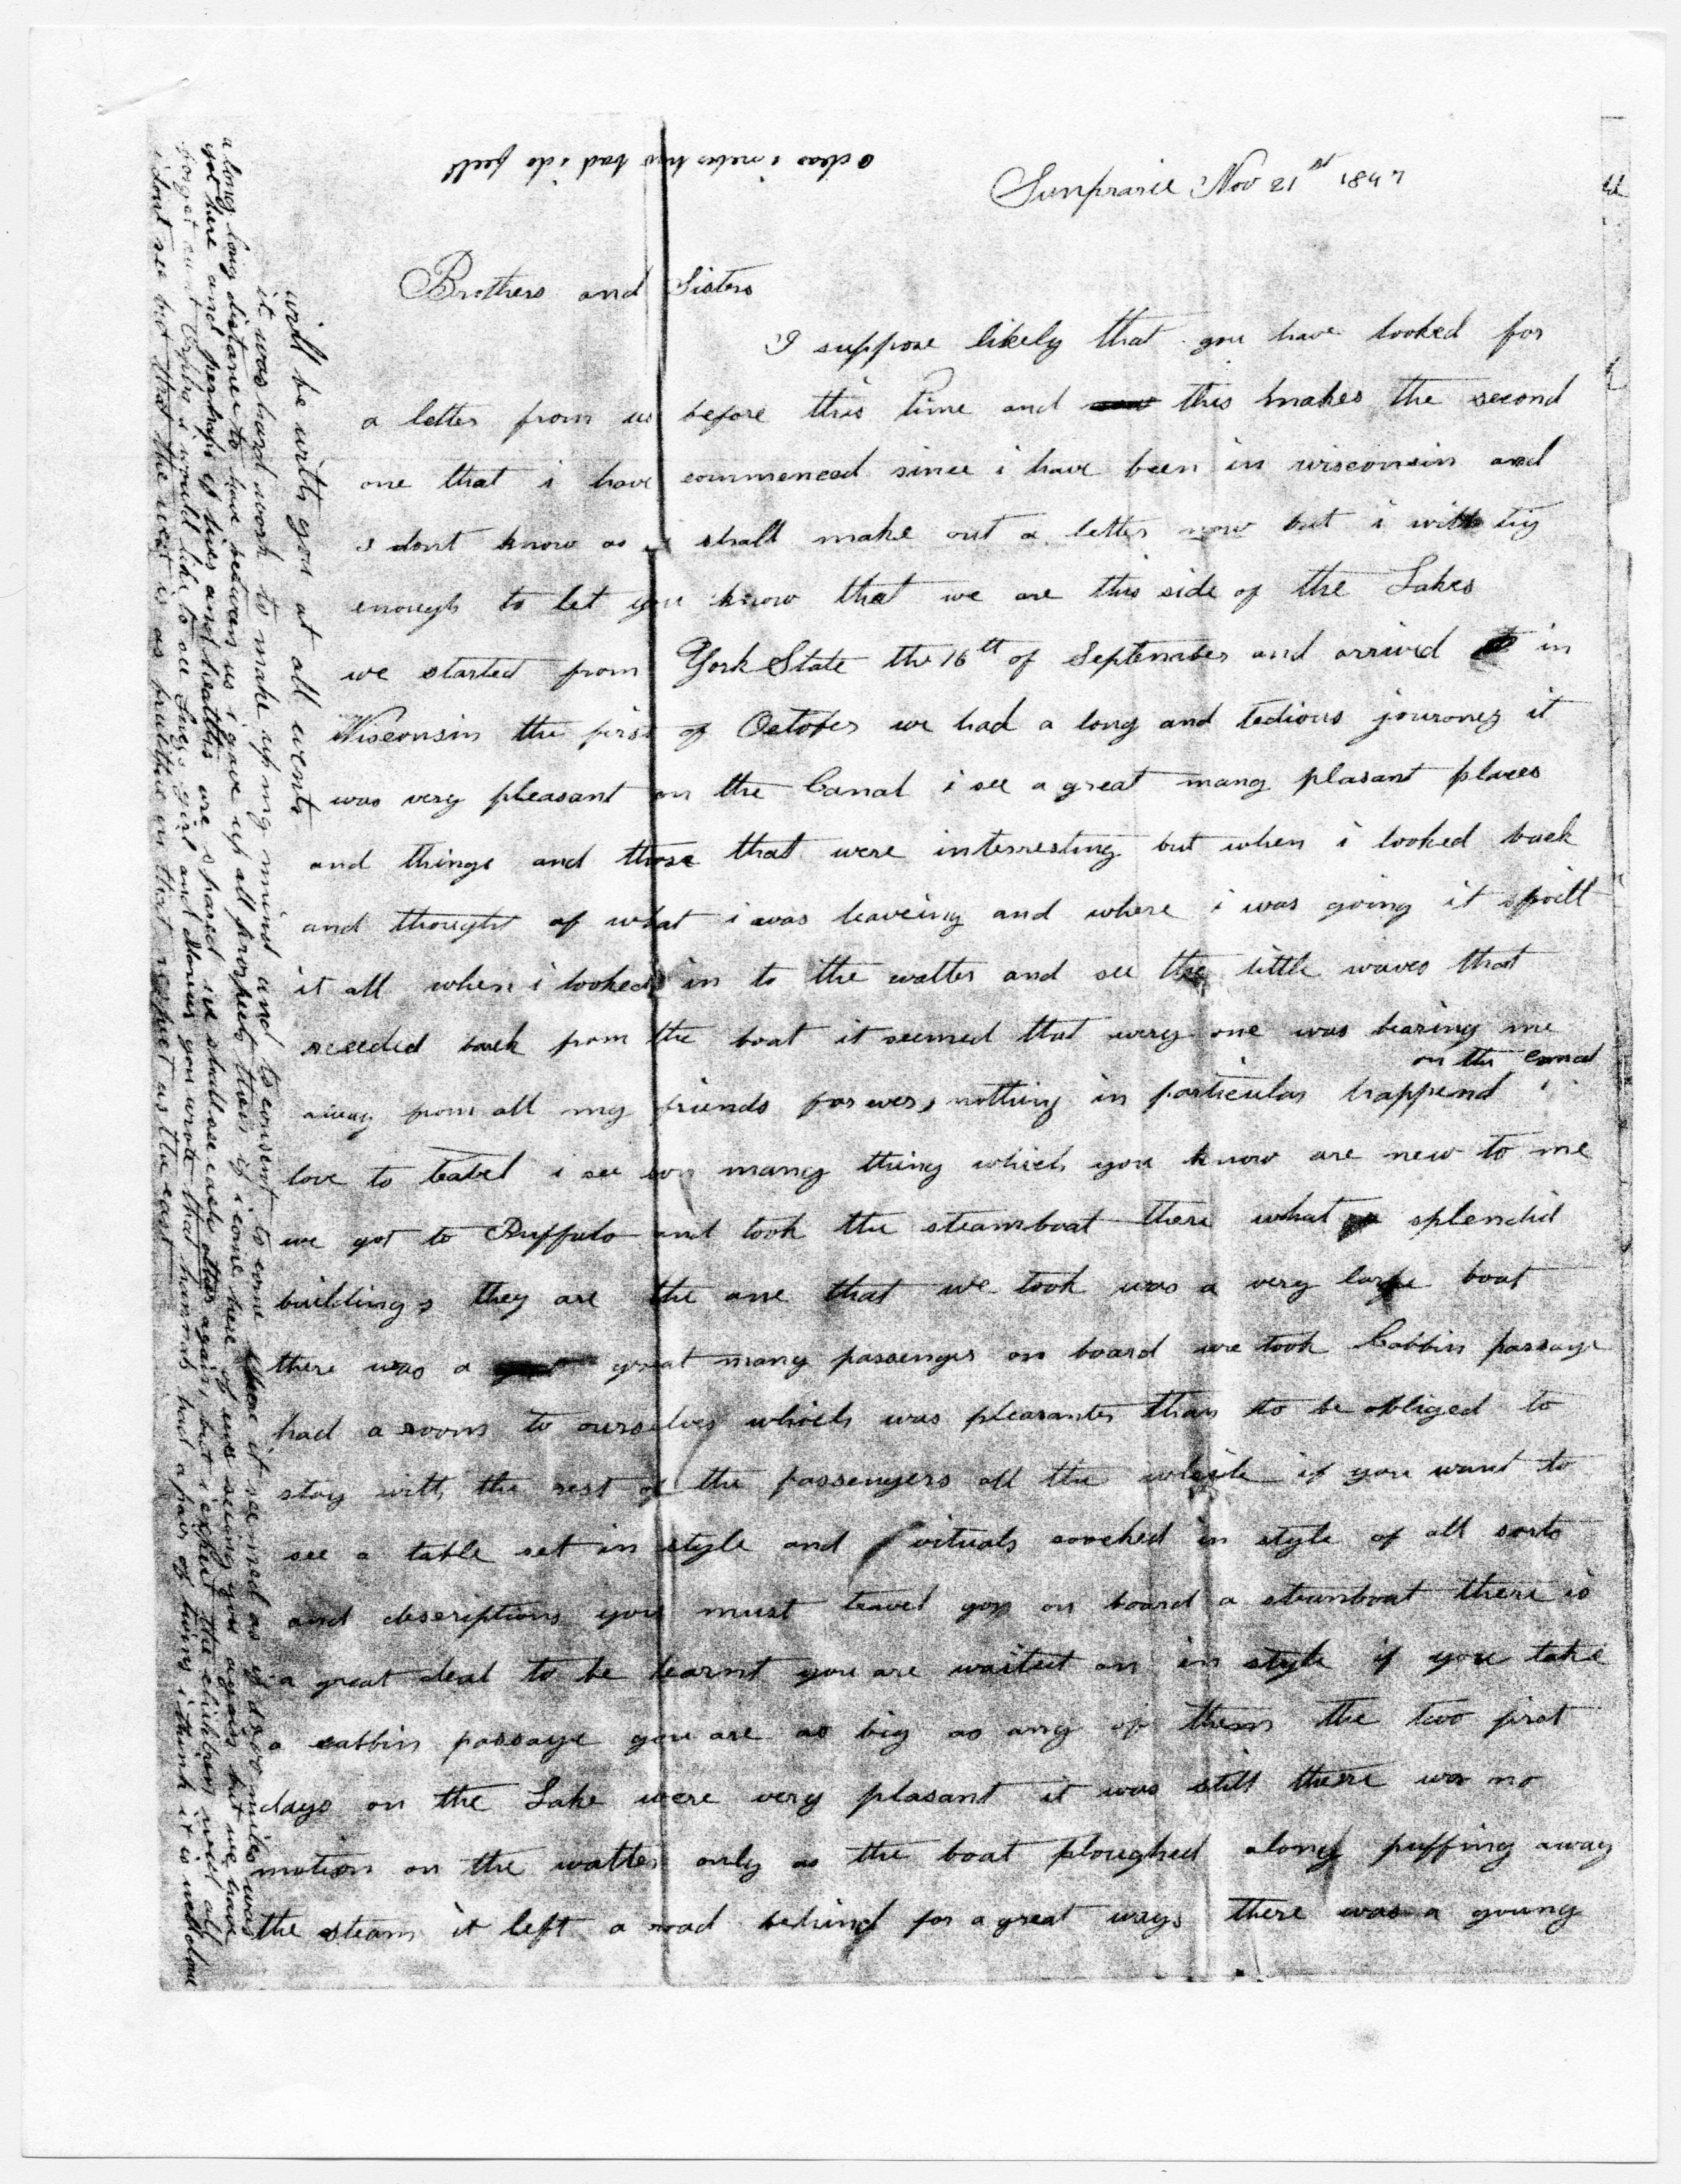 o dear i wish how bad i do feel
Sunprarie Nov 21st 1847
Brothers and Sisters
I suppose likely that you have looked for
a letter from us before this time and this makes the second
one that i have commenced since i have been in wisconsin and
I dont know as i shall make out a letter now but i will try
enough to let you know that we are this side of the Lakes
we started from York State the 16th of September and arrived in
Wisconsin the first of October we had a long and tedious jouroney it
was very pleasant on the Canal i see a great many plasant places
and things and those that were interresting but when i looked back
and thought of what i was leaveing and where i was going it spoilt
it all when i looked in to the watter and see the little waves that
receded back from the boat it seemed that every one was bearing me
away from all my friends forever, nothing in particular happend on the Canal i
love to travel i see son many thing which you know are new to me
we got to Buffalo and took the steamboat there what splendid
buildings they are the one that we took was a very large boat
there was a great many passengers on board we took Cabbin passage
had a room to ourselves which was pleasanter than to be obliged to
stay with the rest of the passengers all the while if you want to
see a table set in style and vituals coocked in style of all sorts
and descriptions you must travel gon on board a steamboat there is
a great deal to be learnt you are waited on in style if you take
a cabbin passage you are as big as any of them the two first
days on the Lake were very plasant it was still there was no
motion on the watter only as the boat ploughed along puffing away
the steam it left a road behind for a great ways there was a young
will be with god at all events
it was hard work to make up my mind and to consent to come here it seemed as if 1500 miles was
a long long distance to have between us i gave up all prospects then if i come here of ever seeing you again but we have
got here and perhaps if lives and healths are spared we shall see each other again, but i expect the children will all
forget aunt i would like to see Lucys girl and you wrote that hannah had a pair of twins i think it is well done
i dont see but that the west is as fruitfull in that respect as the east